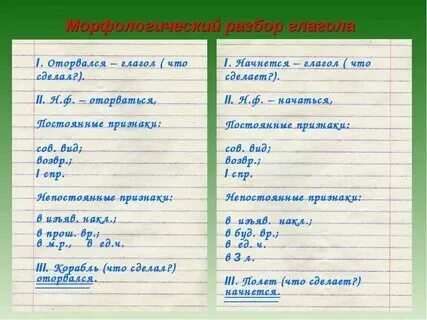 Морфологический разбор глагола
I. Оторвался – глагол ( что
сделал?).
II. Н.ф. – оторваться,
Постоянные признаки:
сов. вид;
возвр.;
I спр.
Непостоянные признаки:
в изъяв. накл.;
в прош. вр.;
в м.р., в ед.ч.
III. Корабль (что сделал?)
оторвался.
I. Начнется – глагол ( что
сделает?).
II. Н.ф. – начаться,
Постоянные признаки:
сов. вид;
возвр.;
I спр.
Непостоянные признаки:
в изъяв. накл.;
в буд. вр.;
в ед. ч.
в 3 л.
III. Полет (что сделает?)
начнется.